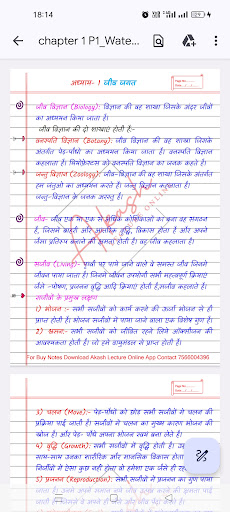 18:14
chapter 1 P1_Wate...
अध्याय- 1 जीव जगत
जीव विज्ञान (Biology):- विज्ञान की वह शाखा जिसके अंदर जीवों
का अध्ययन किया जाता है।
जीव विज्ञान की दो शाखाएं होती हैं:-
वनस्पति विज्ञान (Botany):- जीव विज्ञान की वह शाखा जिसके
अंतर्गत पेड़-पौधों का अध्ययन किया जाता है। वनस्पति विज्ञान
कहलाता है। थियोफ्रेस्टस को वनस्पति विज्ञान का जनक कहते है।
जन्तु विज्ञान (Zoology):- जीव-विज्ञान की वह शाखा जिसके अंतर्गत
हम जंतुओं का अध्ययन करते है। जन्तु विज्ञान कहलाता है।
जन्तु विज्ञान के जनक अरस्तु है।
जीव- जीव एक या एक से अधिक कोशिकाओं का बना वह संगठन
है, जिसमें बाहरी और आन्तरिक वृद्धि, विकास होता है और अपने
जैसा प्रतिरूप बनाने की क्षमता होती है। वह जीव कहलाता है।
सजीव (Living):- पृथ्वी पर पाये जाने वाले वे समस्त जीव जिनमे
जीवन पाया जाता है। जिनमे जीवन उपयोगी सभी महत्वपूर्ण क्रियाएं
जैसे -पोषण, प्रजनन वृद्धि आदि क्रियाएं होती हैं, सजीव कहलाते है।
सजीवों के प्रमुख लक्षण
1) भोजन :- सभी सजीवों को कार्य करने की ऊर्जा भोजन से ही
प्राप्त होती है। भोजन सजीवों में पाया जाने वाला एक विशेष गुण है।
2) श्वसन:- सभी सजीवों को जीवित रहने लिये ऑक्सीजन की
आवश्यकता होती है। जो हमे वायुमंडल से प्राप्त होती है।
For Buy Notes Download Akash Lecture Online App Contact 7566004396
3) चलन (Move):- पेड़-पौधो को छोड़ सभी सजीवों में चलन की
प्रक्रिया पाई जाती है। सजीवों में चलन का मुख्य कारण भोजन की
खोज है। और पेड़- पौधे अपना भोजन स्वयं बना लेते है।
4) वृद्धि (Growth): सभी सजीवों में वृद्धि होती है।
साथ-साथ उनका शारीरिक और मानसिक विकास होता
निर्जीवों मे ऐसा कुछ नहीं होता वो हमेशा एक जैसे ही
5) प्रजनन (Reproduction): सभी सजीवों में प्रजनन का गुण पाया